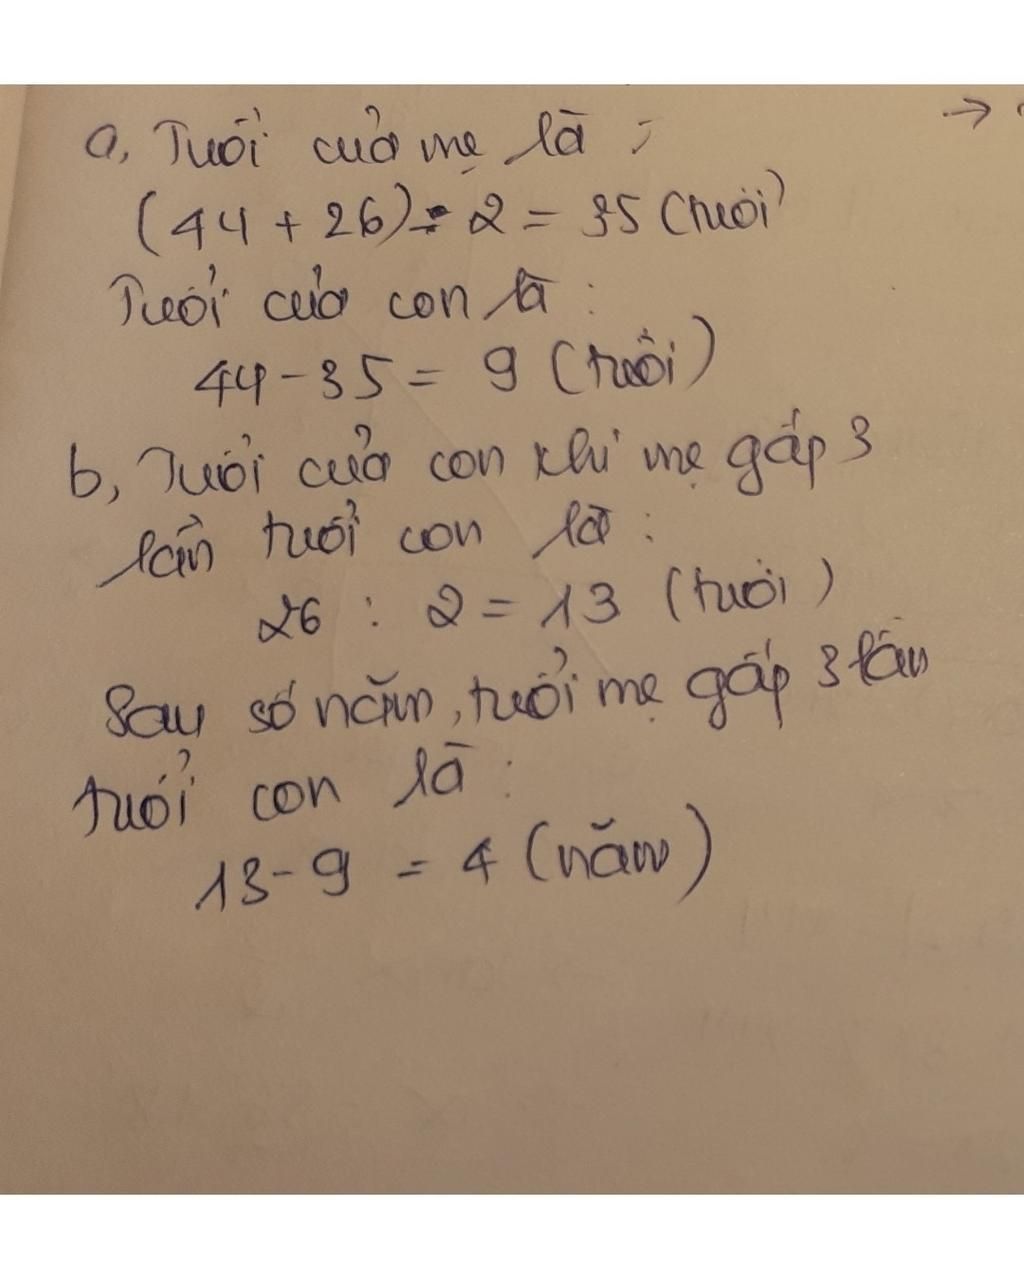 a, Tuổi của mẹ là :
(44 + 26) : 2 = 35 (tuổi)
Tuổi của con là :
44 - 35 = 9 (tuổi)
b, Tuổi của con khi mẹ gấp 3
lần tuổi con là :
26 : 2 = 13 (tuổi)
Sau số năm, tuổi mẹ gấp 3 lần
tuổi con là :
13 - 9 = 4 (năm)